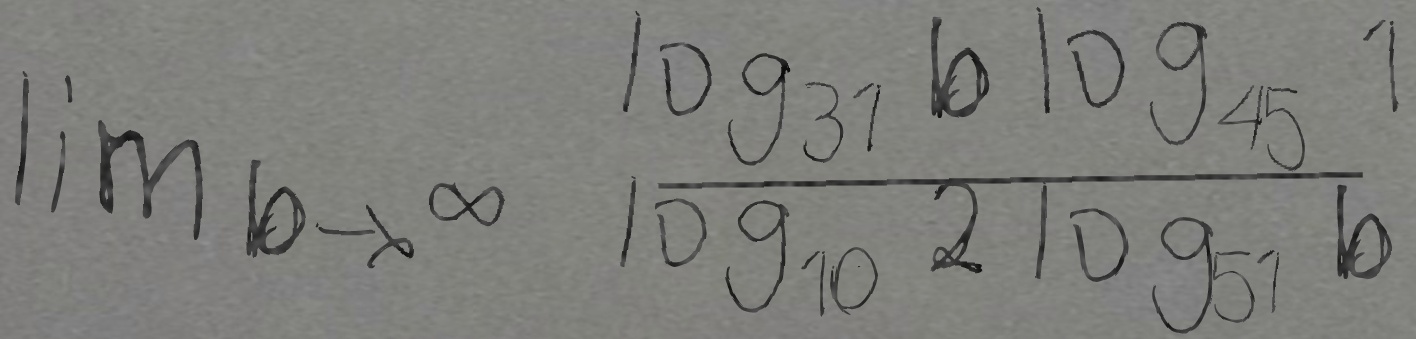 lim_{b→∞} \frac{log_{31} b log_{45} 1}{log_{10} 2 log_{51} b}